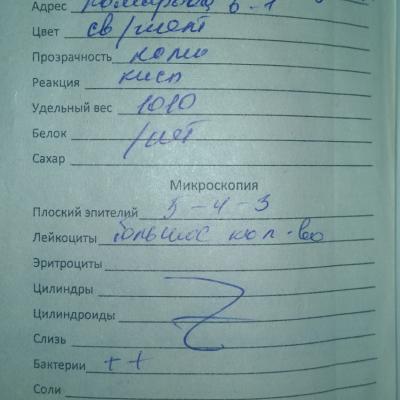 Адрес
Цвет св/жёлт
Прозрачность полн
Реакция кисл
Удельный вес 1010
Белок
Сахар /нет
Микроскопия
Плоский эпителий 5-4-3
Лейкоциты большое кол-во
Эритроциты
Цилиндры
Цилиндроиды
Слизь
Бактерии ++
Соли